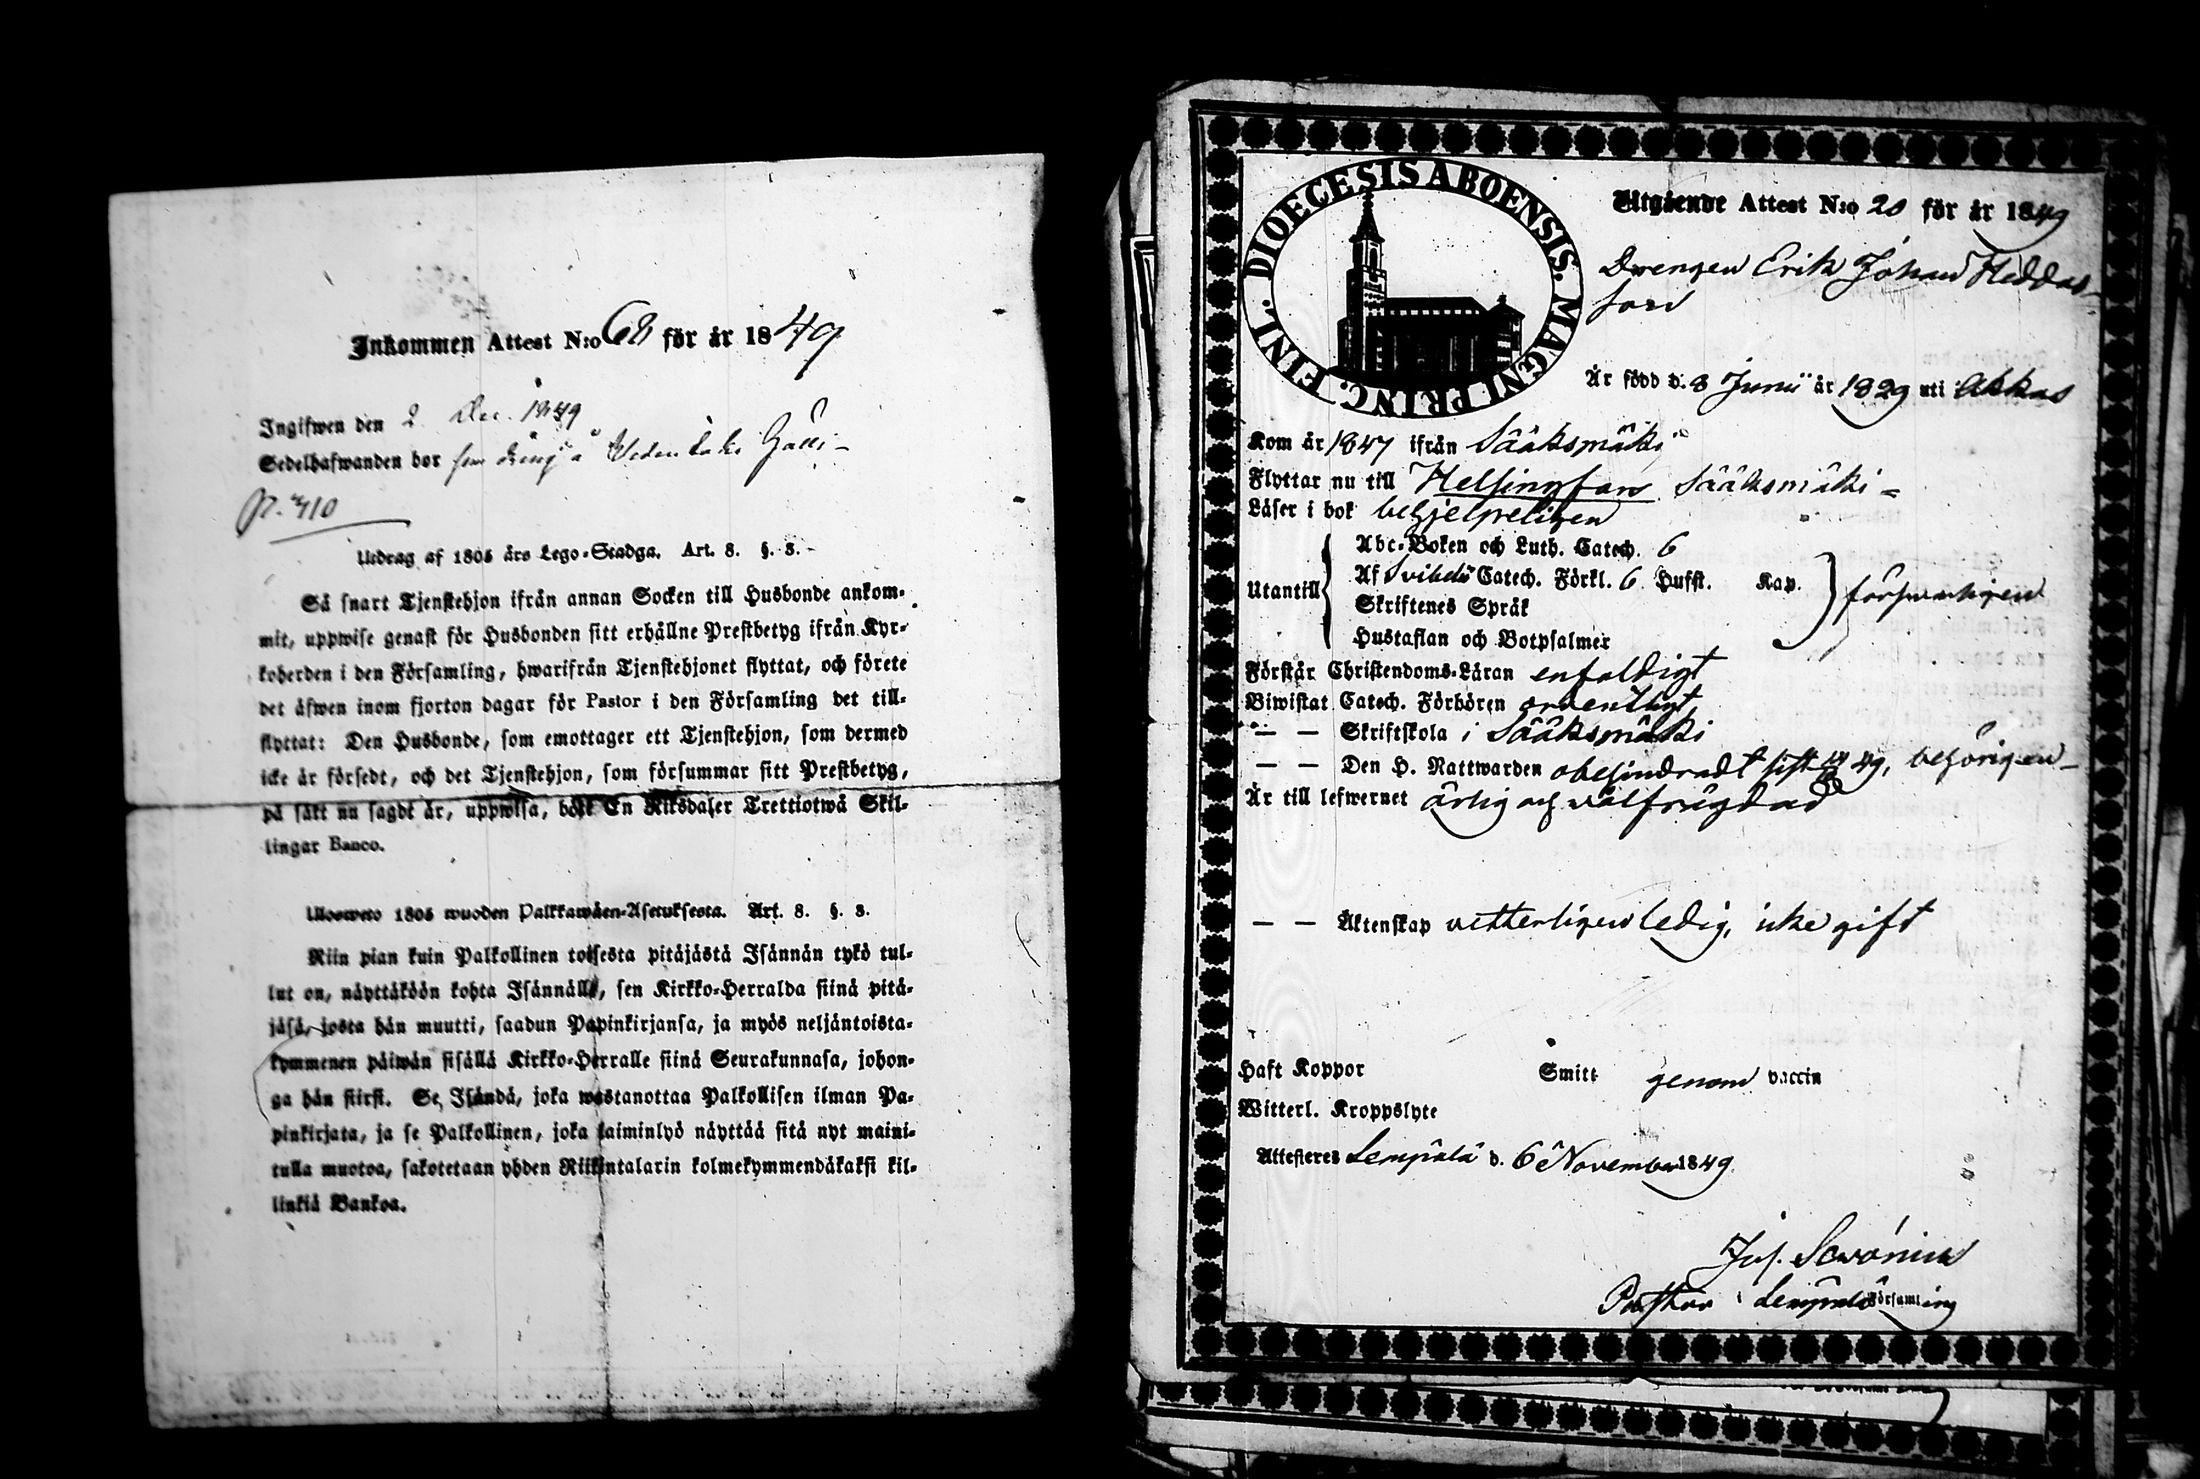 Inkommen Attest N:o 68 för år 1849
Ingifwen den 2 Dec. 1849
Sedelhafwanden bor som dräng å
P. 410
Utdrag af 1805 års Lego-Stadga. Art. 8. §. 3.
Så snart Tjenstehjon ifrån annan Socken till Husbonde ankom-
mit, uppwise genast för Husbonden sitt erhållne Prestbetyg ifrån Kyr-
koherden i den Församling, hwarifrån Tjenstehjonet flyttat, och förete
det äfwen inom fjorton dagar för Pastor i den Församling det till-
flyttat: Den Husbonde, som emottager ett Tjenstehjon, som dermed
icke är försedt, och det Tjenstehjon, som försummar sitt Prestbetyg,
på sätt nu sagdt är, uppwisa, böte En Riksdaler Trettiotwå Skil-
lingar Banco.
Ulosweto 1805 wuoden Palkkawäen-Asetuksesta. Art. 8. §. 3.
Niin pian kuin Palkollinen toisesta pitäjästä Isännän tykö tul-
lut on, näyttäköön kohta Isännälle, sen Kirkko-Herralda siinä pitä-
jäsä, josta hän muutti, saadun Papinkirjansa, ja myös neljäntoista-
kymmenen päiwän sisällä Kirkko-Herralle siinä Seurakunnasa, johon-
ga hän siirst. Se Isändä, joka wastanottaa Palkollisen ilman Pa-
pinkirjata, ja se Palkollinen, joka laiminlyö näyttää sitä nyt maini-
tulla muotoa, sakotetaan yhden Riikintalarin kolmekymmendäkaksi kil-
linkiä Bankoa.
DIOECESIS ABOENSIS. MAGNI PRINC. FINL.
Utgående Attest N:o 20 för år 1849
Drengen Erik Johan Heddas-
Är född d. 8 Junii år 1829 uti Akkas
Kom år 1847 ifrån Sääksmäki
Flyttar nu till Helsingfors Sääksmäki
Läser i bok behjelpeligen
Abc-Boken och Luth. Catech. 6
Utantill Af Svibelii Catech. Förkl. 6 Hufst. Kap. försvarligen
Skriftenes Språk
Hustaflan och Botpsalmer
Förstår Christendoms-Läran enfaldigt
Biwistat Catech. Förhören ordentligt
— — Skriftskola i Sääksmäki
— — Den H. Nattwarden obehindradt sist 49, behörigen
Är till lefwernet ärlig och välfrägdad
— — Äktenskap vetterligen ledig, icke gift
Haft Koppor Smitt genom vaccin
Witterl. Kroppslyte
Attesteres Lempälä d. 6 November 1849.
Pastor i Lempälä Församling